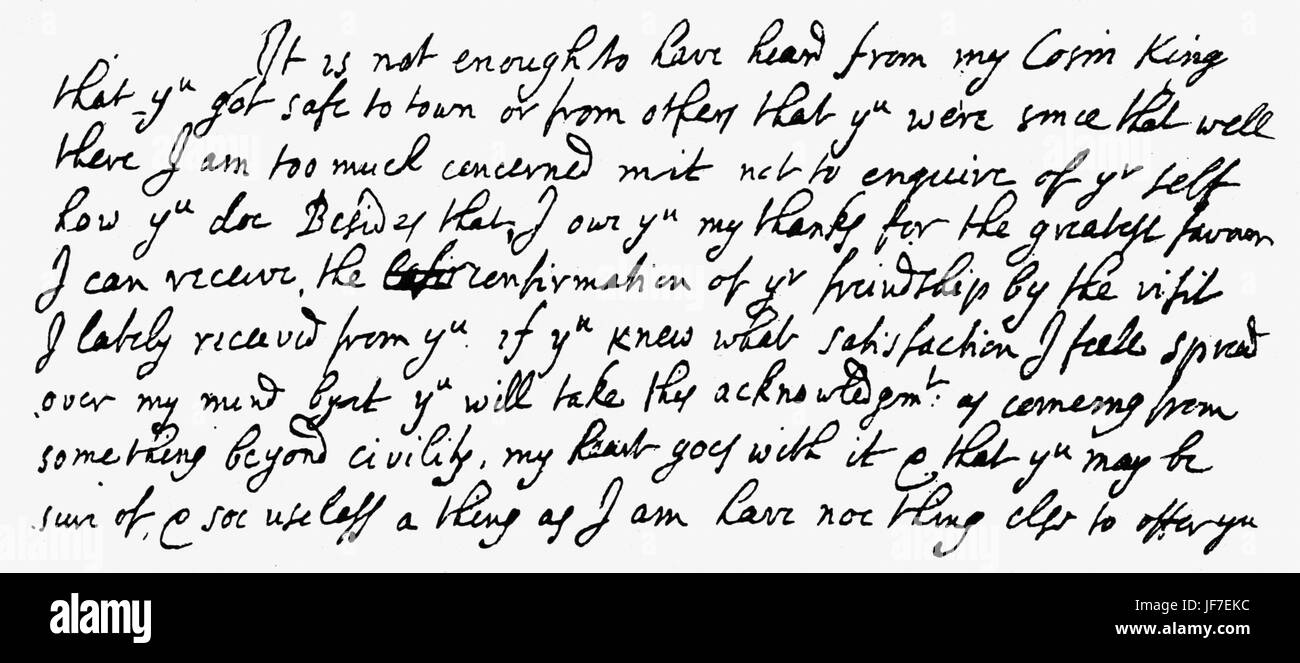 It is not enough to have heard from my Cosin King
that yu got safe to town or from others that yu were since that well
there I am too much concerned in it not to enquire of yr self
how yu doe Besides that, I owe yu my thanks for the greatest favour
I can receive, the confirmation of yr freindship by the visit
I lately received from yu. if yu knew what satisfaction I feele spread
over my mind by it yu will take this acknowledgmt. as comeing from
something beyond civility, my heart goes with it & that yu may be
sure of, & soe uselesse a thing as I am have noe thing else to offer yu
alamy
Image ID: JF7EKC
www.alamy.com